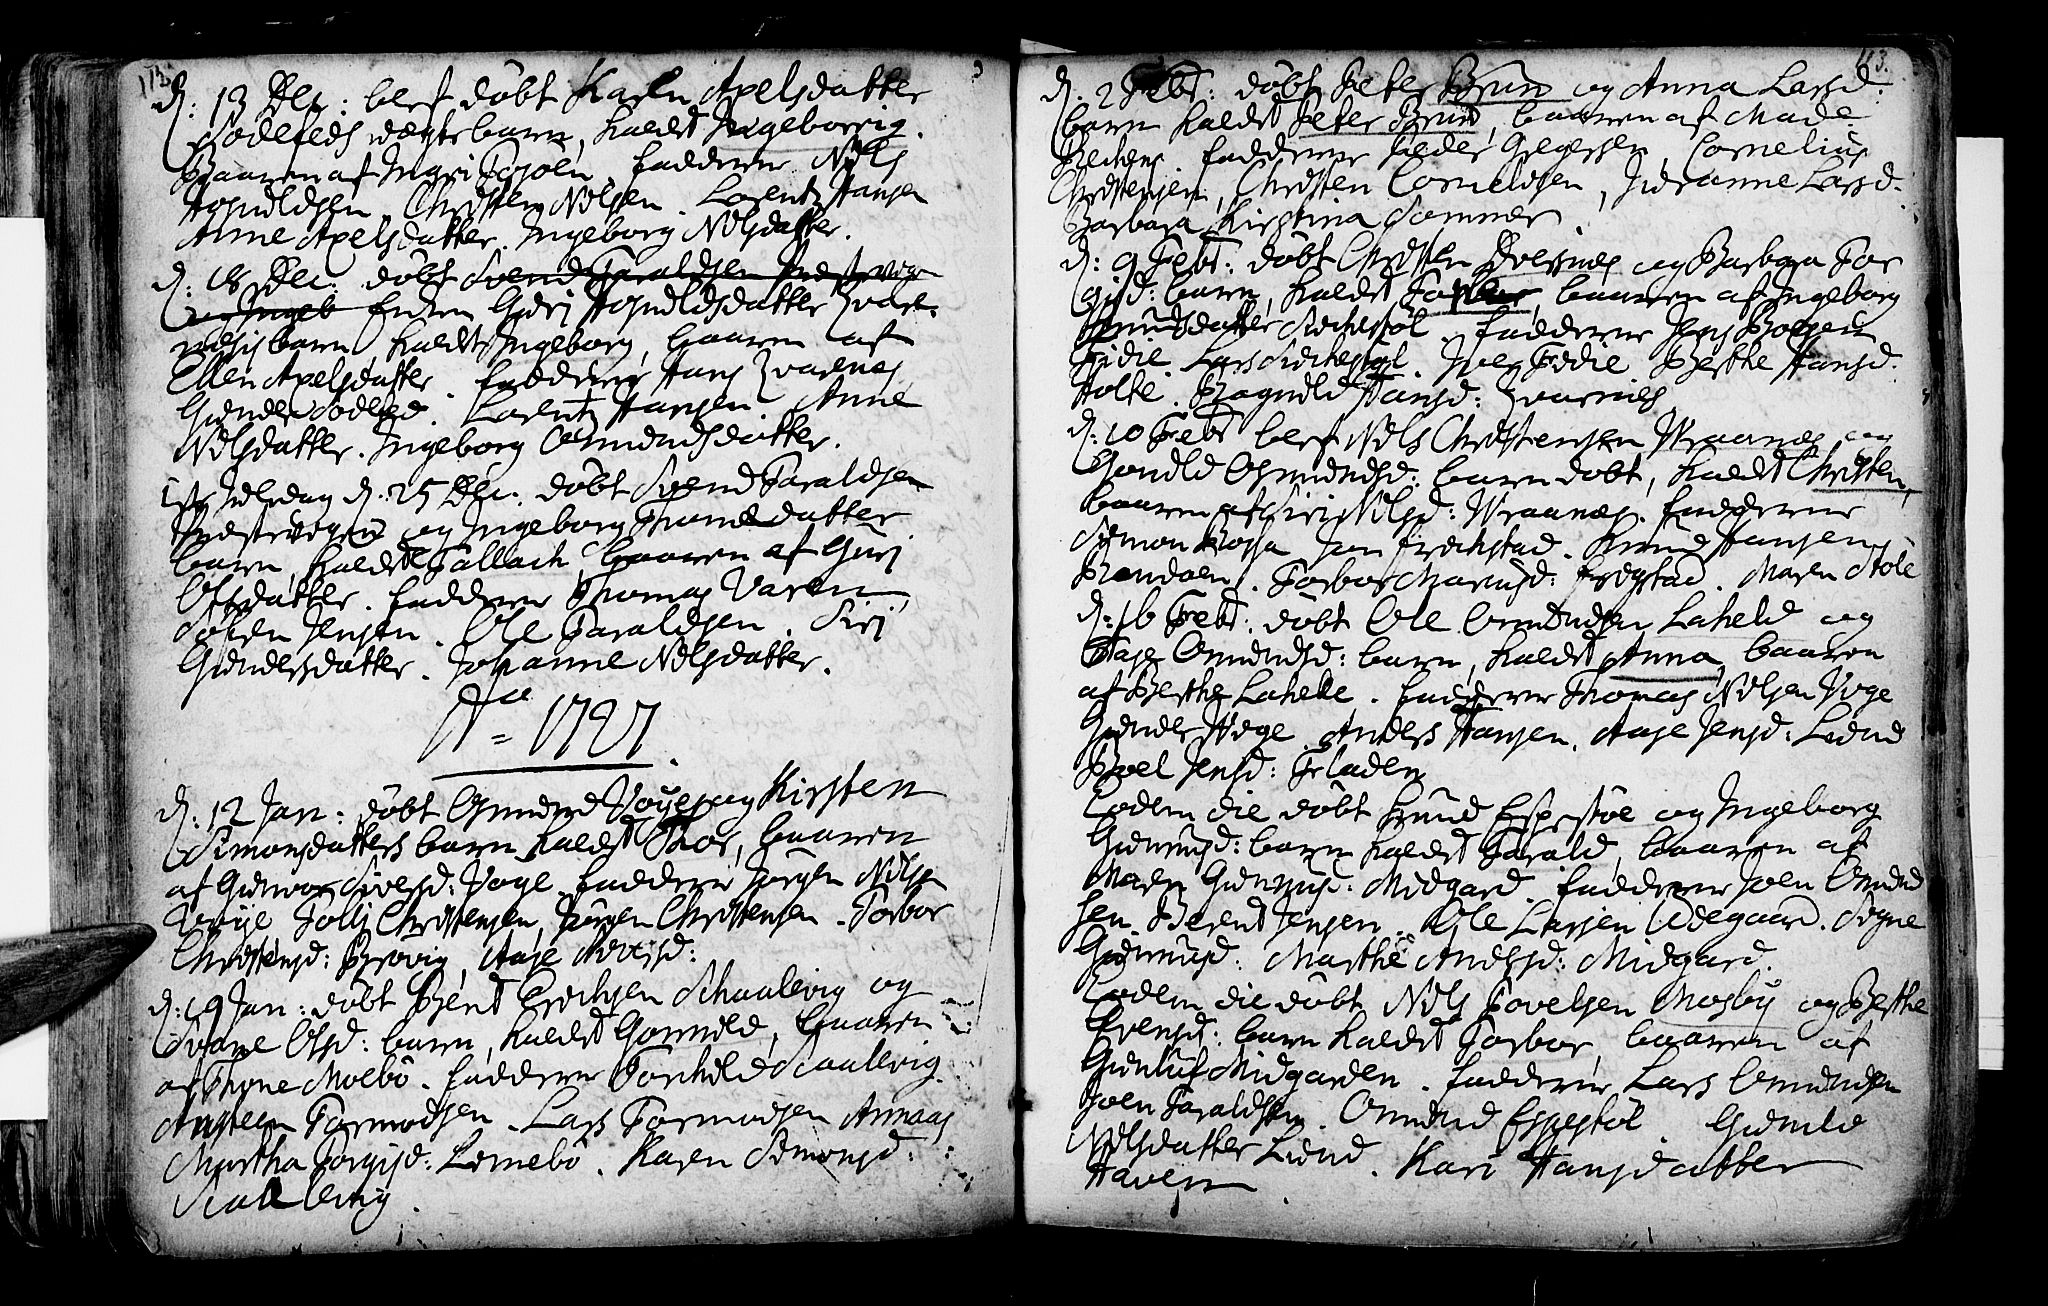 113.
d: 13 Dec: blef döbt Karen Axelsdatter
Sodefeds barn, kaldet
Baaren af Ingri faddrene Nils
Christen Nilsen. Lorentz Hansen
Anne Axelsdatter. Ingeborg Nilsdatter.
d: 18 Dec. döbt Svend Taraldsen
og Ingeb Guri
barn, kaldet Ingeborg, baaren af
Ellen Axelsdatter. faddrene Hans Qvarenes,
Gunder Sodefed. Lorentz Hansen. Anne
Nilsdatter. Ingeborg Osmundsdatter.
Juledag d: 25 Dec. döbt Svend Taraldsen
og Ingeborg
barn, kaldet Tallach, baaren af Guri
Olsdatter. faddrene Thomas Varen,
Sören Jensen. Ole Taraldsen. Siri
Gundersdatter. Johanne Nilsdatter.
Ao 1727.
d: 12 Jan: döbt Omund og Kirsten
Simonsdatters barn kaldet Thor, baaren
af Gunvor Siversd: Voge faddrene Jörgen Nilsen
Voye Tolli Christensen, Jörgen Christensen. Torbor
Christensd: Brovig, Aase
d: 19 Jan: döbt Bent Erichsen Schaalevig og
Olsd: barn, kaldet Gonnild, baaren
af Thone Moebö. faddrene Torkild Schaalevig.
Austeen Tormodsen. Lars Tormodsen Aunaas
Martha Torgisd: Lonebö. Karen Simonsd:
Scaalevig.
113.
d: 2 Febr: döbt Peter Brun og Anna Larsd:
barn kaldet Peter Brun, baaren af Made
faddrene Peder Gregersen, Cornelius
Christensen, Christen Corneliusen, Larsd.
Barbara Kirstina Sommer
d: 9 Febr: döbt Christen og Barbara Tor
gisd: barn, kaldet baaren af Ingeborg
Knudsdatter faddrene Jens
Fidie. Lars Iver Fidie Berthe Hansd:
Holte. Ragnild Hansd: Qvarnes
d: 10 Febr blef Nils Christensen Vraanes og
Gonild Osmundsd: barn döbt, kaldet Christen,
baaren af Siri Nilsd: Vraanes. faddrene
Simon Rossa Jan Knud Hansen
Torbor Maren Stöle
d: 16 Febr: döbt Ole Omundsen Laheld og
Aase Omundsd: barn, kaldet Anna, baaren
af Berthe Lahelle. faddrene Thomas Nilsen Voge
Gunder Höge Anders Hansen. Aase Jensd: Lund
Boel Jensd: Fladen
Eodem die döbt Knud Espestöl og Ingeborg
Gunnusd: barn kaldet Tarald, baaren af
Maren Gunnusd: Midgard. faddrene Joen Omund
sen. Berent Jensen. Ole Larsen Ödegaard. Signe
Gunnusd: Marthe Andersd: Midgard.
Eodem die döbt Nils Povelsen Mosby og Berthe
Svensd: barn kaldet Torbor, baaren af
Midgarden. faddrene Lars Omundsen
Joen Taraldsen. Omund Espestöl. Gunild
Nilsdatter Lund. Kari Hansdatter
Haven